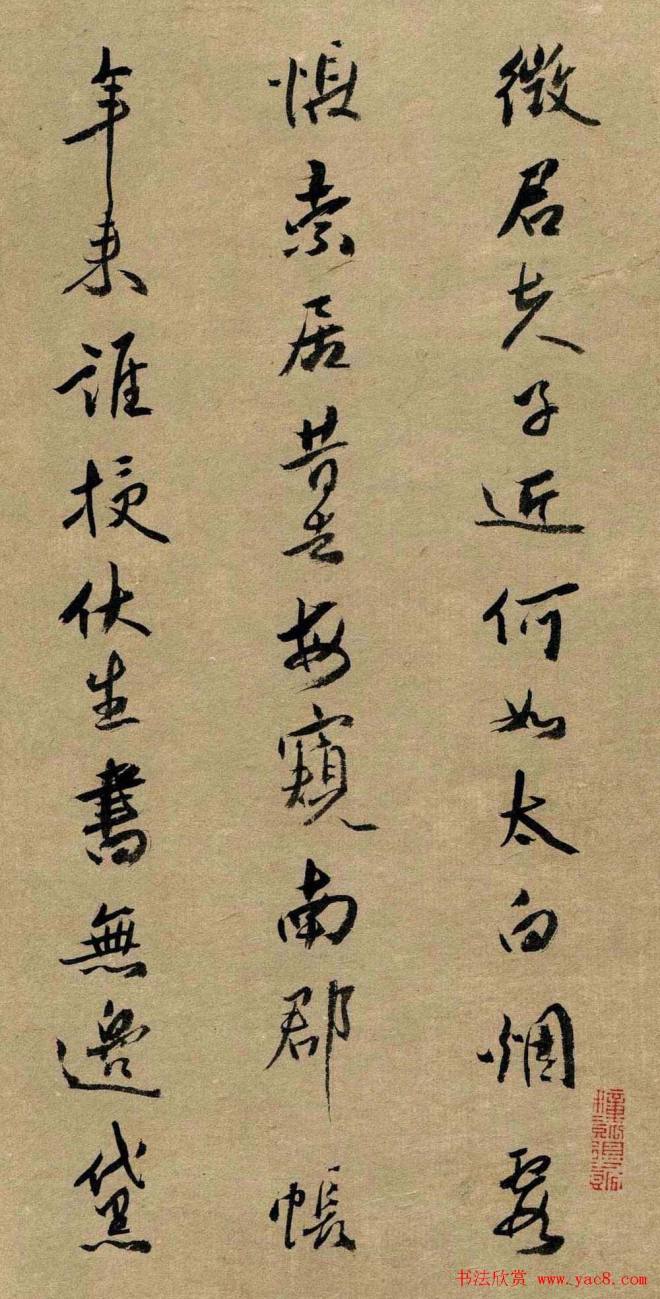 徵君夫子近何如太白烟霞
悵索居昔去每窺南郡帳
年來誰授伏生書無邊黛
书法欣赏 www.yac8.com